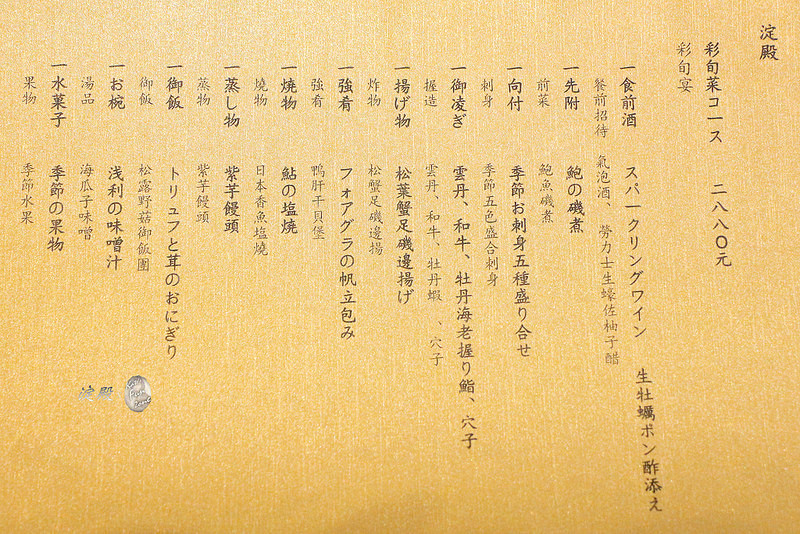 淀殿
彩旬菜コース 二八八〇元
彩旬宴
一食前酒 スパークリングワイン 生牡蠣ポン酢添え
餐前招待 氣泡酒、勞力士生蠔佐柚子醋
一先附 鮑の磯煮
前菜 鮑魚磯煮
一向付 季節お刺身五種盛り合せ
刺身 季節五色盛合刺身
一御凌ぎ 雲丹、和牛、牡丹海老握り鮨、穴子
握造 雲丹、和牛、牡丹蝦、穴子
一揚げ物 松葉蟹足磯邊揚げ
炸物 松蟹足磯邊揚
一強肴 フォアグラの帆立包み
強肴 鴨肝干貝堡
一焼物 鮎の塩焼
燒物 日本香魚塩燒
一蒸し物 紫芋饅頭
蒸物 紫芋饅頭
一御飯 トリュフと茸のおにぎり
御飯 松露野菇御飯團
一お椀 浅利の味噌汁
湯品 海瓜子味噌
一水菓子 季節の果物
果物 季節水果
淀殿